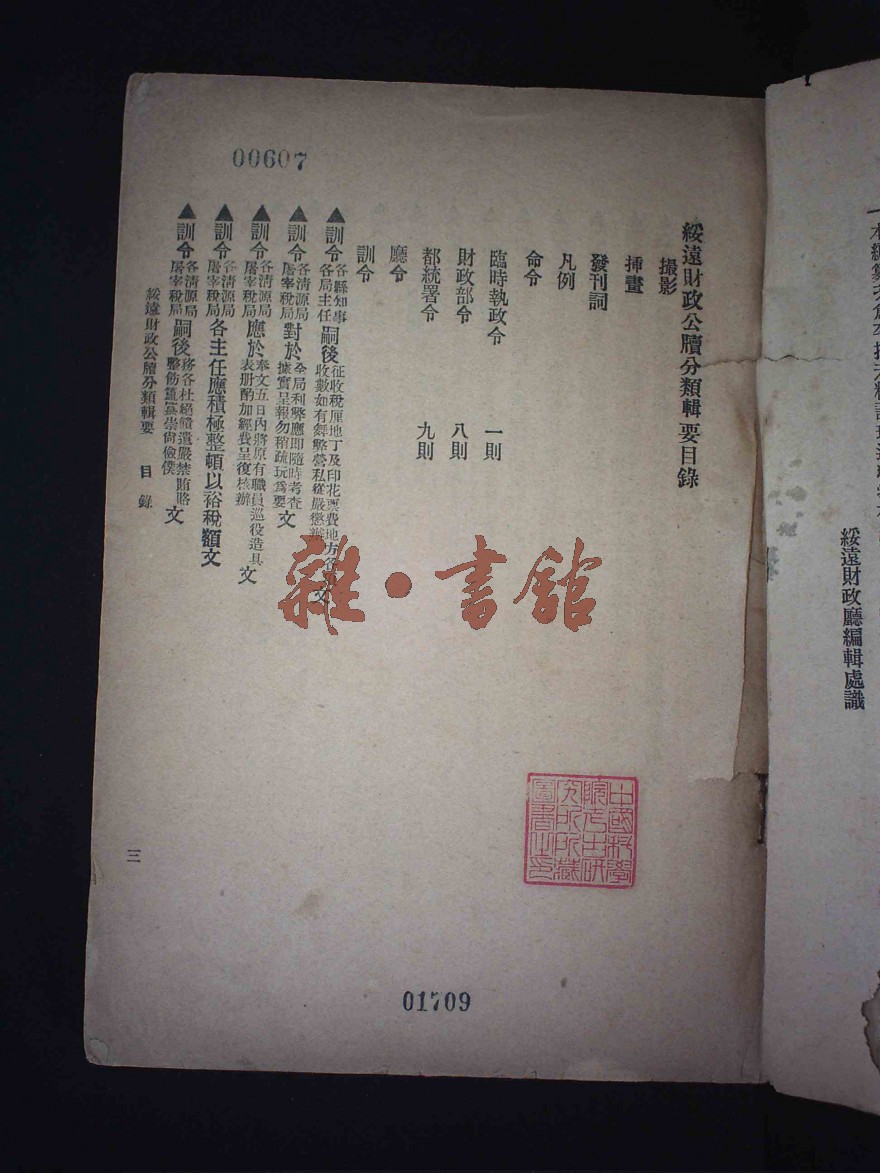 綏遠財政廳編輯處識
00607
綏遠財政公牘分類輯要目錄
撮影
挿畫
發刊詞
凡例
命令
臨時執政令 一則
財政部令 八則
都統署令 九則
廳令
訓令
▲訓令各縣知事各局主任嗣後征收稅厘地丁及印花票費地方各收數如有舞弊營私從嚴懲辦文
▲訓令各清源局屠宰稅局對於全局利弊應即隨時考查據實呈報勿稍疏玩爲要文
▲訓令各清源局屠宰稅局應於奉文五日內將原有職員巡役造具表册酌加經費呈復核辦文
▲訓令各清源局屠宰稅局各主任應積極整頓以裕稅額文
▲訓令各清源局屠宰稅局嗣後務各杜絕餽遺嚴禁賄賂整飭簠簋崇尚儉僕文
綏遠財政公牘分類輯要 目錄
三
雜·書館
中國科學
院考古研
究所所藏
圖書之印
01709